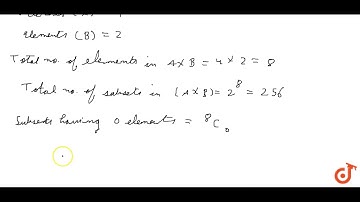 Elements (B) = 2
Total no. of elements in A×B = 4×2 = 8
Total no. of subsets in (A×B) = 2^8 = 256
Subsets having 0 elements = ^8C_0